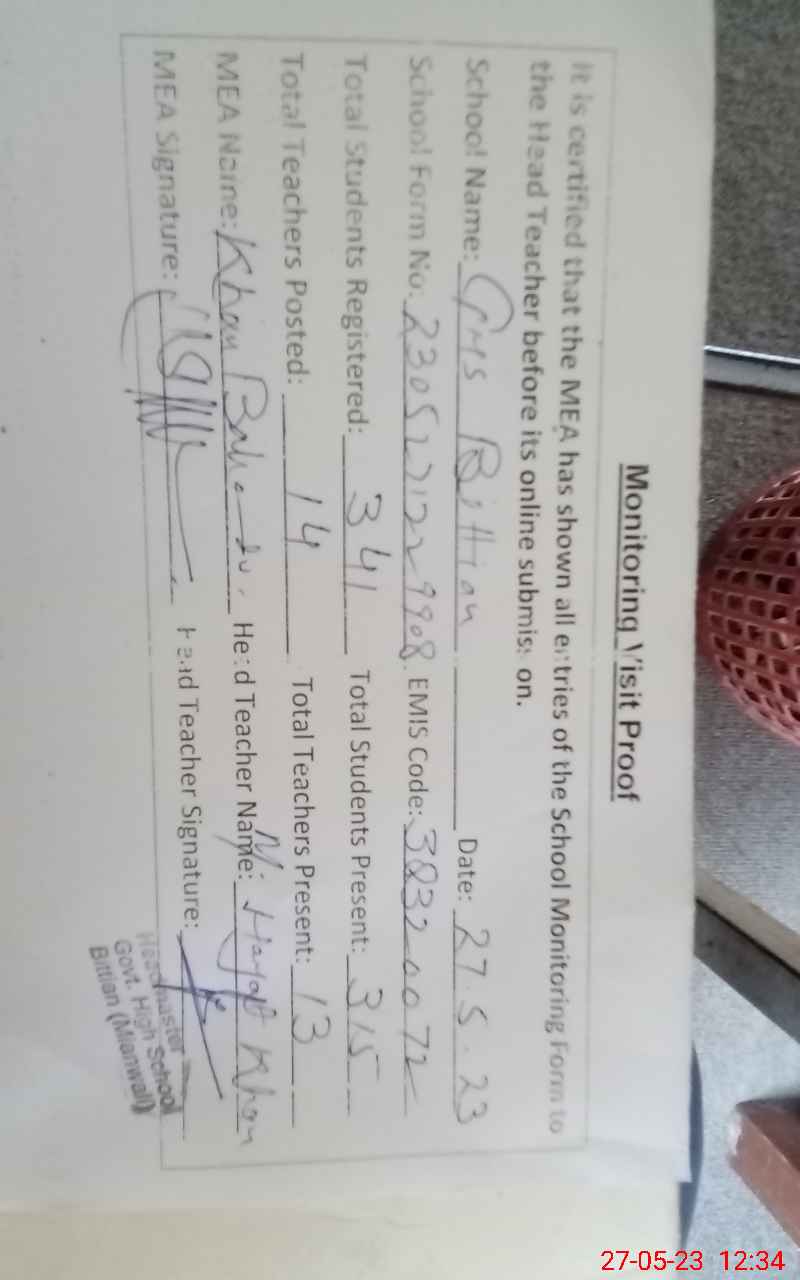 Monitoring Visit Proof
It is certified that the MEA has shown all entries of the School Monitoring Form to
the Head Teacher before its online submission.
School Name: GHS Bittian Date: 27.5.23
School Form No: 2305271229908 EMIS Code: 38320072
Total Students Registered: 341 Total Students Present: 315
Total Teachers Posted: 14 Total Teachers Present: 13
MEA Name: Khan Bahadur Head Teacher Name: M. Hayat Khan
MEA Signature: Head Teacher Signature:
Headmaster
Govt. High School
Bittian (Mianwali)
27-05-23 12:34